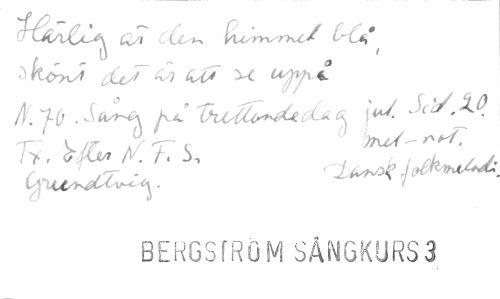 Härlig är den himmel blå,
skönt det är att se uppå
N. 70. Sång på trettondedag jul. Sid. 20.
mel-not.
Tx. Efter N. F. S.
Grundtvig.
Dansk folkmelodi.
BERGSTRÖM SÅNGKURS 3